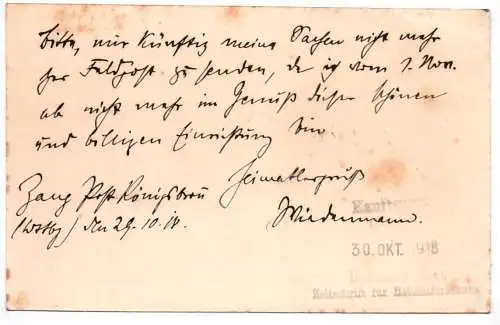 Bitte, mir künftig meine Sachen nicht mehr
per Feldpost zu senden, da ich vom 1. Nov.
ab nicht mehr im Genuß dieser schönen
und billigen Einrichtung bin.
Heimatlergruß
Zang Post Königsbronn
(Wttbg) den 29.10.18.
Wiedenmann.
30. OKT. 1918
Zeitschrift für